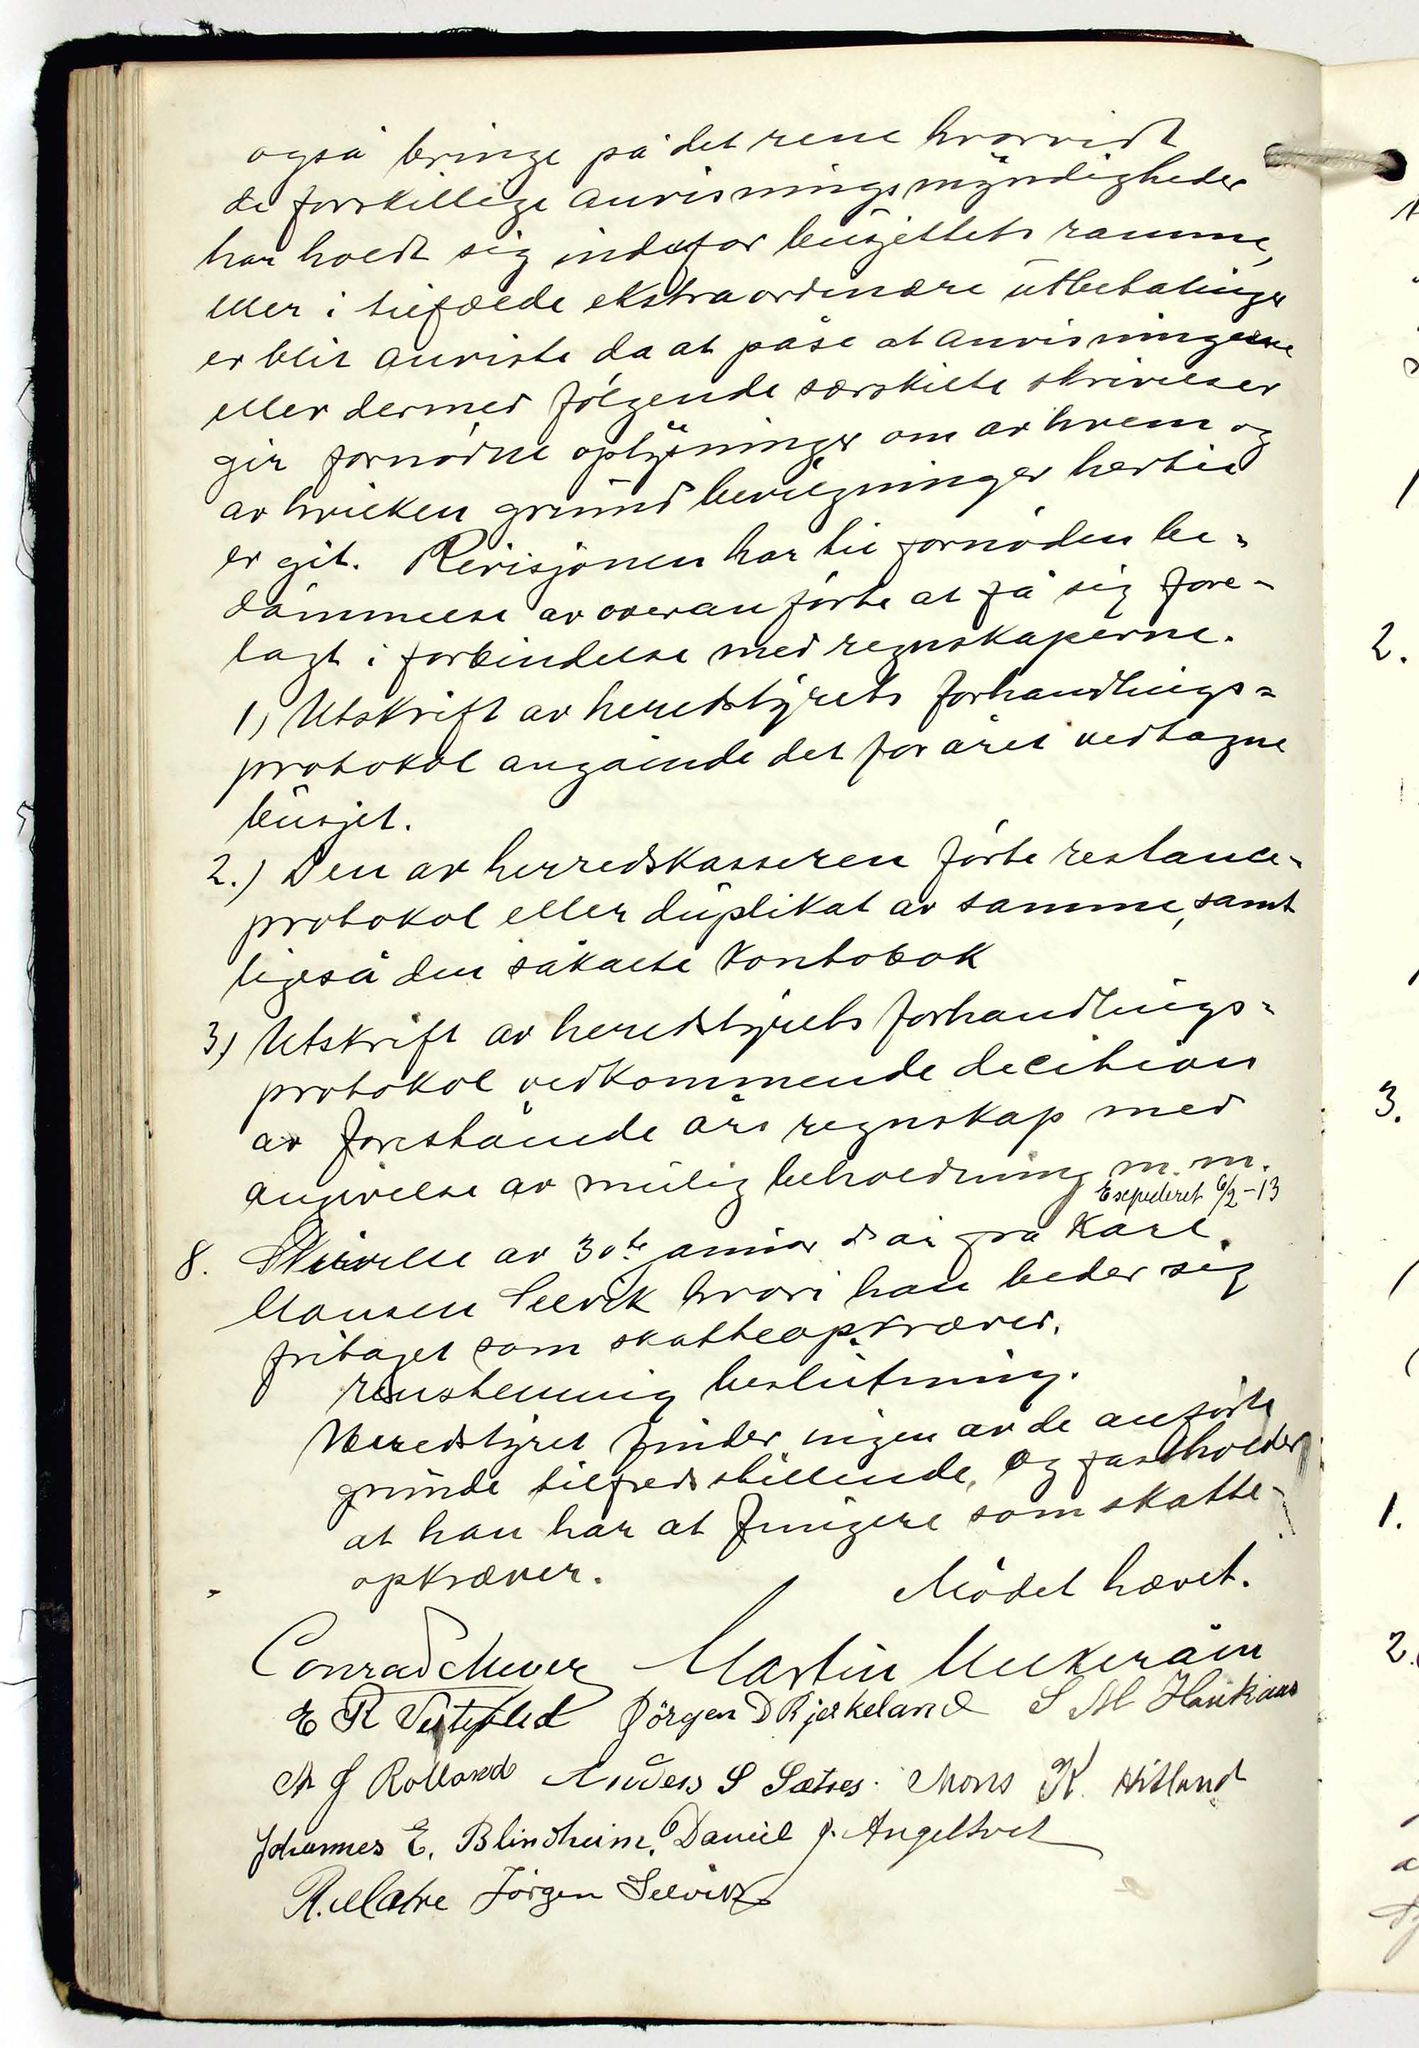 også bringe på det rene hvorvidt
de forskillige anvisningsmyndigheder
har holdt sig indenfor busjettets ramme,
eller i tilfælde ekstraordinære utbetalinger
er blit anviste da at påse at anvisningerne
eller dermed følgende særskilte skrivelser
gir fornødne oplysninger om av hvem og
av hvilken grund bevilgninger hertil
er git. Revisjonen har til fornøden be-
dømmelse av overanførte at få sig fore-
lagt i forbindelse med regnskaperne.
1) Utskrift av heredstyrets forhandlings-
protokol angående det for året vedtagne
busjet.
2.) Den av herredskasseren førte restance-
protokol eller duplikat av samme, samt
ligeså den såkalte Kontobok
3) Utskrift av heredstyrets forhandlings-
protokol vedkommende decition
av forestående års regnskap med
angivelse av mulig beholdning m.m.
Exepederet 6/2-13
8. Skrivelse av 30te januar d år fra Karl
Monsen Selvik hvori han beder sig
fritaget som skatteopkræver.
Enstemmig beslutning.
Heredstyret finder ingen av de anførte
grunde tilfredsstillende, og fastholder
at han har at fungere som skatte-
opkræver.
Mødet hævet.
Conrad Mever Martin
E R Jørgen D Bjerkeland S M Haukaas
M J Rolland Anders S Sætres Mons K. Hitland
Johannes E. Blindheim. Daniel J. Angeltvet
R. Matre Jørgen Selvik
2.
3.
1.
2.